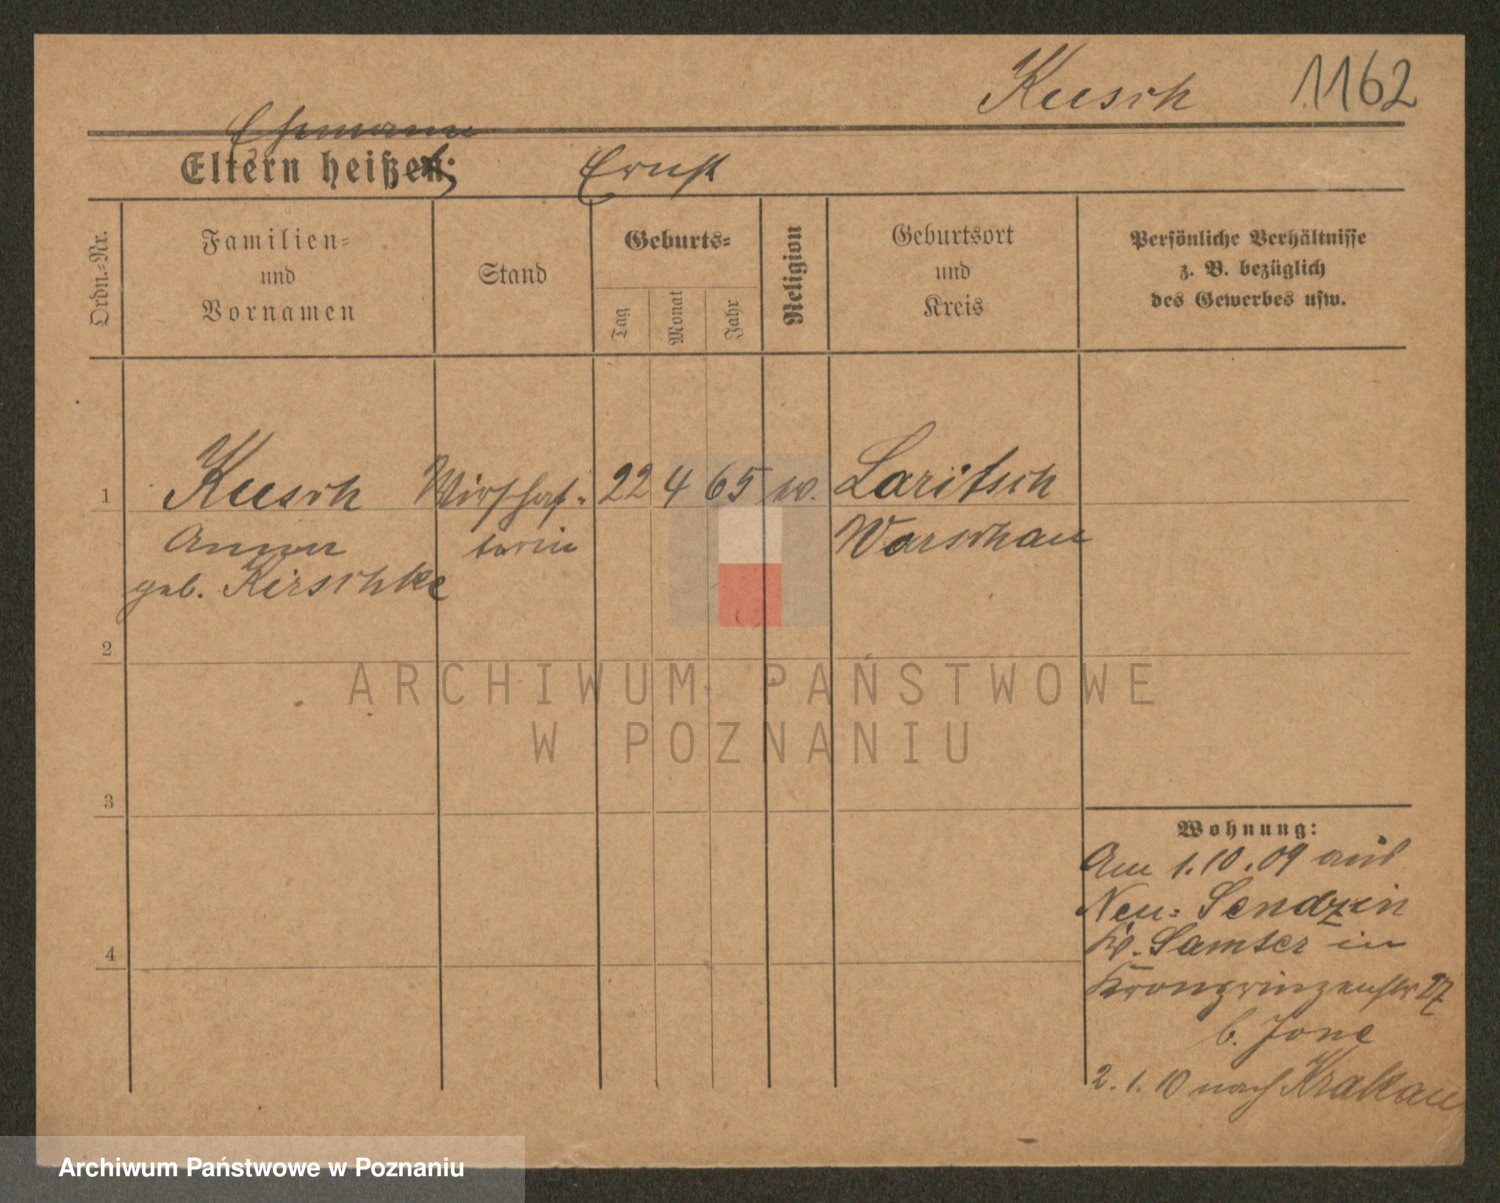 Kusch 1162
Ehemann
Eltern heißen: Ernst
Ordn.-Nr.
Familien-
und
Vornamen
Stand
Geburts-
Tag
Monat
Jahr
Religion
Geburtsort
und
Kreis
Persönliche Verhältnisse
z. B. bezüglich
des Gewerbes usw.
1 Kusch Wirschaf- 22 4 65 w. Laritsch
Anna terin Warschau
geb. Kirschke
2
3
4
Wohnung:
Am 1.10.09 aus
Neu- Sendzin
Kr. Samter in
Kronprinzenstr 97
b. Jone
2.1.10 nach Krakau
ARCHIWUM PAŃSTWOWE
W POZNANIU
Archiwum Państwowe w Poznaniu